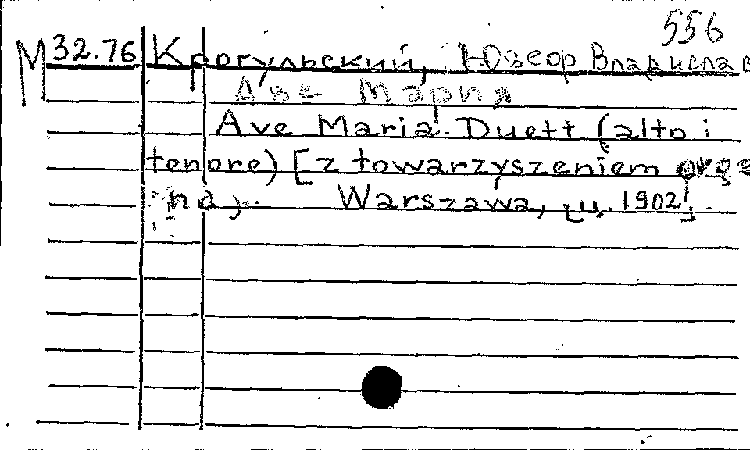 556
М 32.76 Крогульский, Юзеф Владислав
Аве Мария
Ave Maria. Duett (alto i
tenore) [z towarzyszeniem orga
na]. Warszawa, [u. 1902].